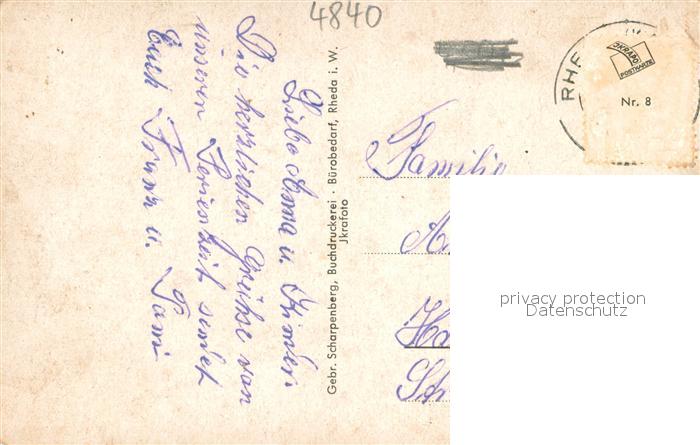 4840
Liebe Anna u. Kinder.
Die herzlichen Grüße von
unserer Ferienzeit sendet
Euch Franz u. Fam.
Gebr. Scharpenberg, Buchdruckerei · Bürobedarf, Rheda i. W.
Jkrafoto
RHE
JKRAFO
POSTKARTE
Nr. 8
Familie
privacy protection
Datenschutz